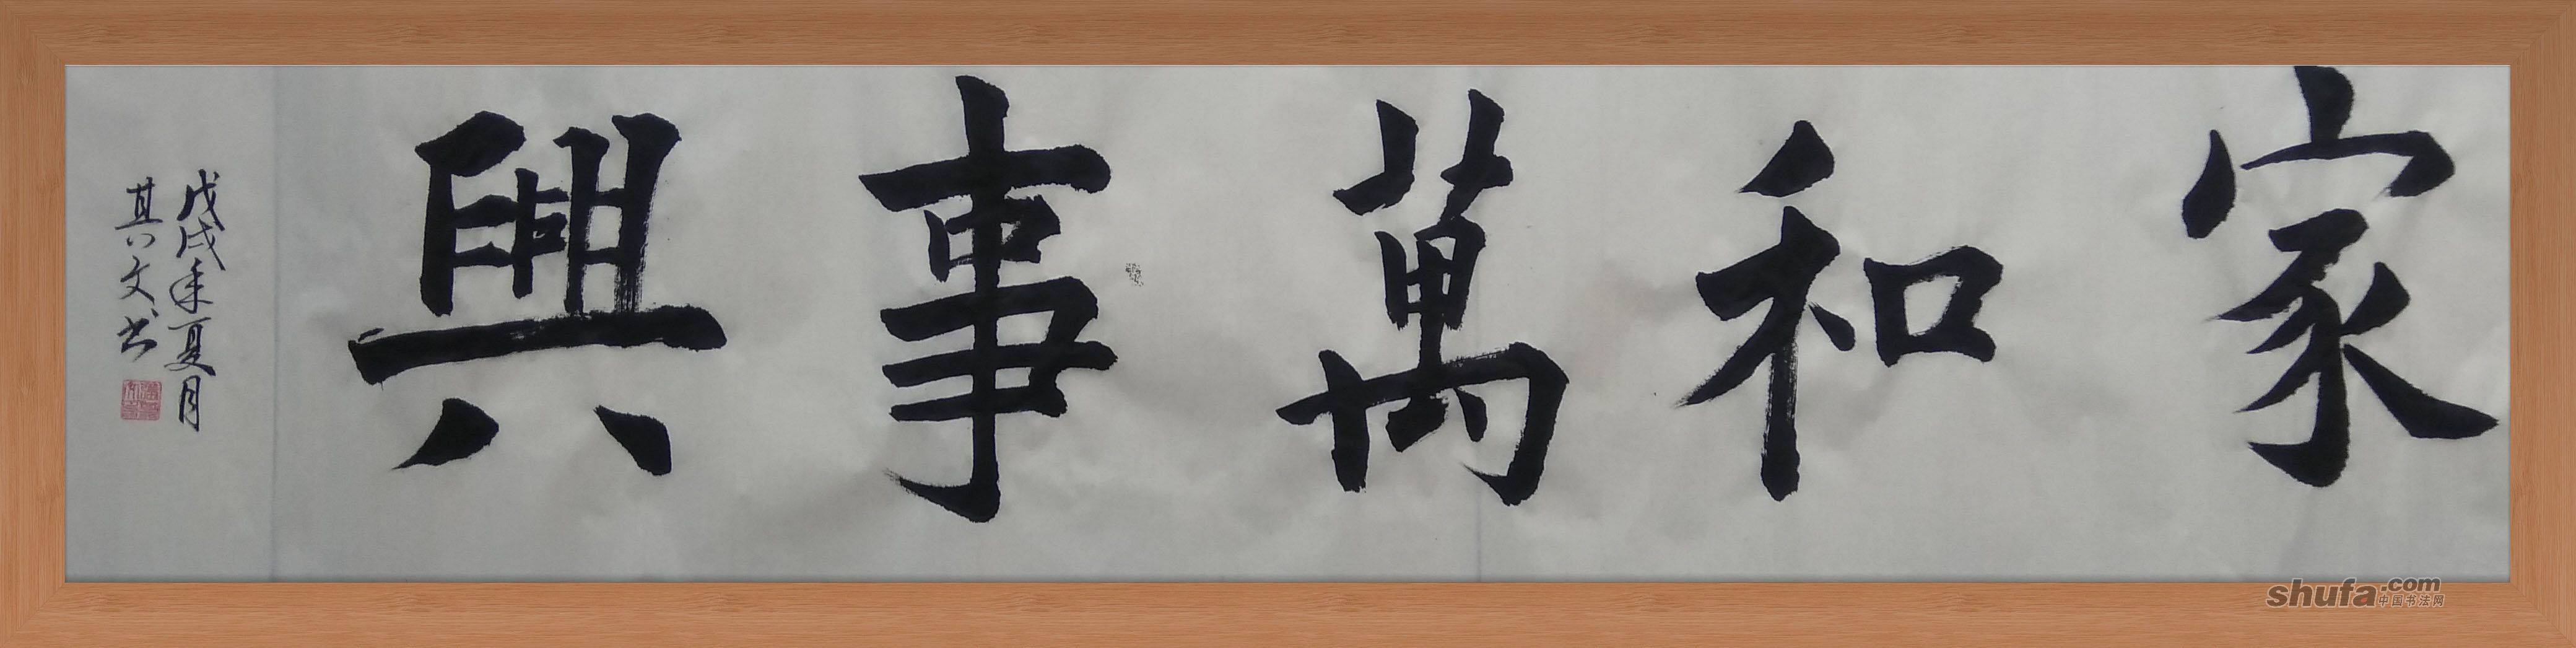 家和萬事興
戊戌年夏月
其文书
shufa.com
中国书法网